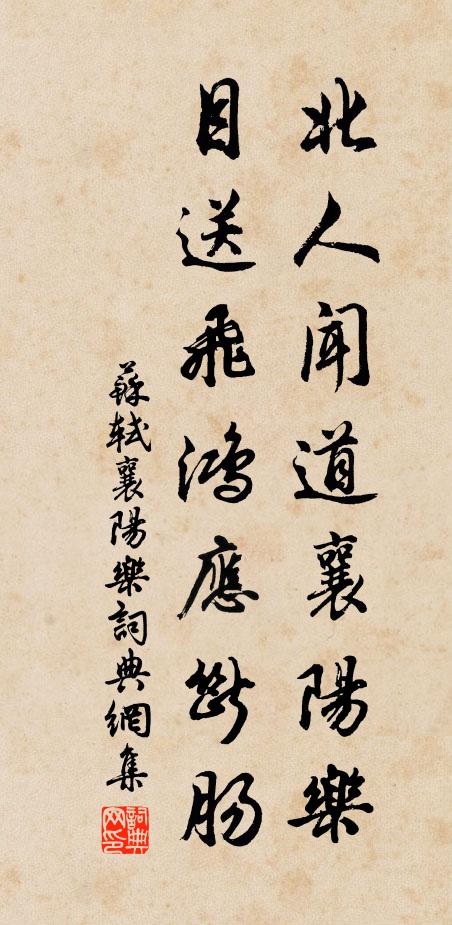 北人聞道襄陽樂
目送飛鴻應斷腸
蘇軾襄陽樂詞典網集
詞典
网印